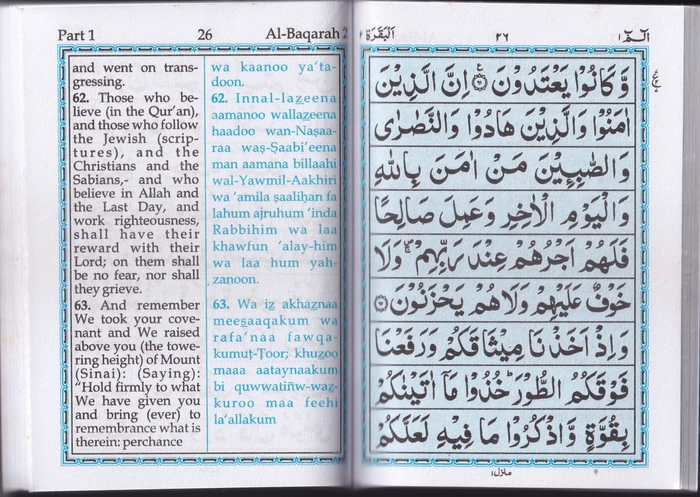 Part 1 26 Al-Baqarah 2
and went on trans-
gressing.
62. Those who be-
lieve (in the Qur'an),
and those who follow
the Jewish (scrip-
tures), and the
Christians and the
Sabians,- and who
believe in Allah and
the Last Day, and
work righteousness,
shall have their
reward with their
Lord; on them shall
be no fear, nor shall
they grieve.
63. And remember
We took your cove-
nant and We raised
above you (the towe-
ring height) of Mount
(Sinai): (Saying):
"Hold firmly to what
We have given you
and bring (ever) to
remembrance what is
therein: perchance
wa kaanoo ya'ta-
doon.
62. Innal-lazeena
aamanoo wallazeena
haadoo wan-Naṣaa-
raa waṣ-Ṣaabi'eena
man aamana billaahi
wal-Yawmil-Aakhiri
wa 'amila ṣaaliḥan fa
lahum ajruhum 'inda
Rabbihim wa laa
khawfun 'alay-him
wa laa hum yaḥ-
zanoon.
63. Wa iz akhaznaa
meesaaqakum wa
rafa'naa fawqa-
kumuṭ-Ṭoor; khuzoo
maaa aataynaakum
bi quwwatiñw-waz-
kuroo maa feehi
la'allakum
الٓـمّٓ ١ ٢٦ اَلْبَقَرَة ٢
وَّكَانُوْا يَعْتَدُوْنَ ۞ اِنَّ الَّذِيْنَ
اٰمَنُوْا وَالَّذِيْنَ هَادُوْا وَالنَّصٰرٰى
وَالصّٰبِـِٕيْنَ مَنْ اٰمَنَ بِاللّٰهِ
وَالْيَوْمِ الْاٰخِرِ وَعَمِلَ صَالِحًا
فَلَهُمْ اَجْرُهُمْ عِنْدَ رَبِّهِمْ ۚ وَلَا
خَوْفٌ عَلَيْهِمْ وَلَا هُمْ يَحْزَنُوْنَ ۞
وَاِذْ اَخَذْنَا مِيْثَاقَكُمْ وَرَفَعْنَا
فَوْقَكُمُ الطُّوْرَ ؕ خُذُوْا مَآ اٰتَيْنٰكُمْ
بِقُوَّةٍ وَّاذْكُرُوْا مَا فِيْهِ لَعَلَّكُمْ
منزل ١